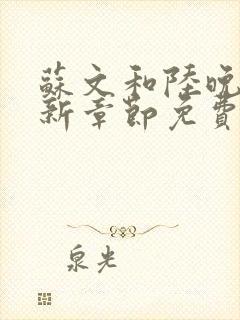 蘇文和陸晚
新章節免費
泉光